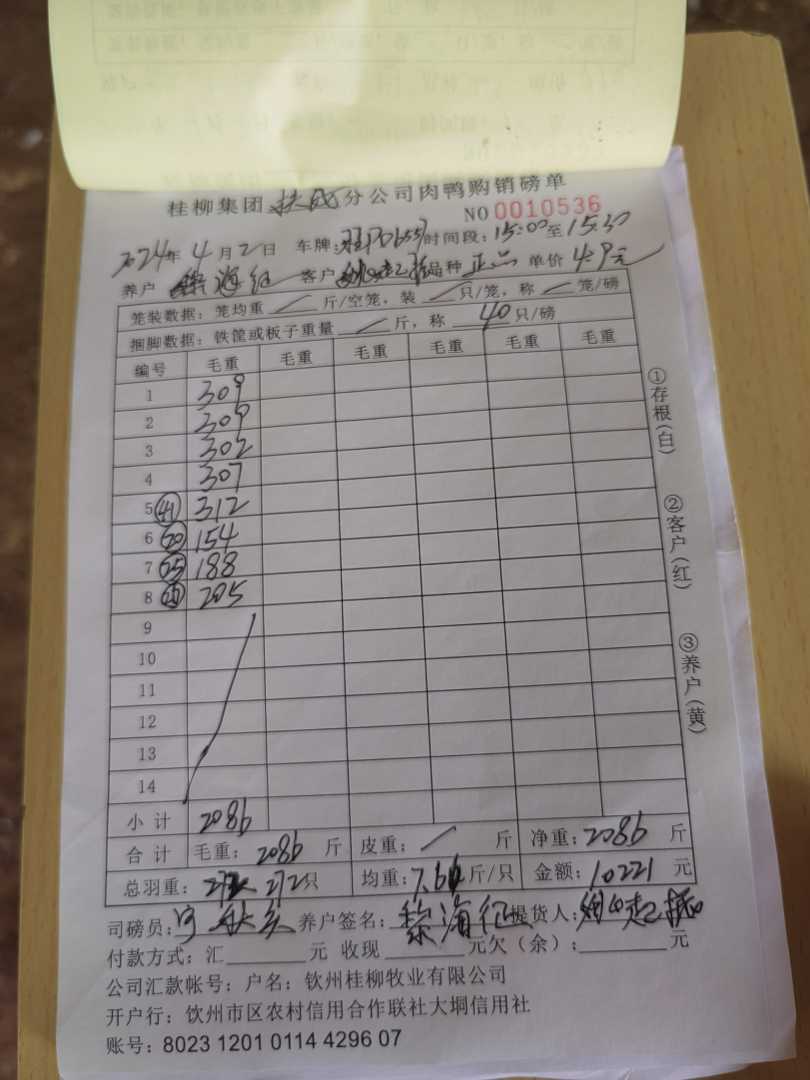 桂柳集团扶成分公司肉鸭购销磅单
NO 0010536
2024年4月2日 车牌: 时间段:15:00至15:30
养户 客户 品种 正品 单价 4.9元
笼装数据: 笼均重 / 斤/空笼, 装 / 只/笼, 称 / 笼/磅
捆脚数据: 铁筐或板子重量 / 斤, 称 40 只/磅
编号 毛重 毛重 毛重 毛重 毛重 毛重
1 309
2 309
3 302
4 307
5 41 312
6 20 154
7 25 188
8 205
9
10
11
12
13
14
小计 2086
合计 毛重: 2086 斤 皮重: / 斤 净重: 2086 斤
总羽重: 272只 均重: 7.66斤/只 金额: 10221 元
司磅员: 养户签名: 黎海征 提货人:
付款方式: 汇______元 收现______元欠(余):______元
公司汇款帐号: 户名: 钦州桂柳牧业有限公司
开户行: 钦州市区农村信用合作联社大垌信用社
账号: 8023 1201 0114 4296 07
①存根(白)
②客户(红)
③养户(黄)